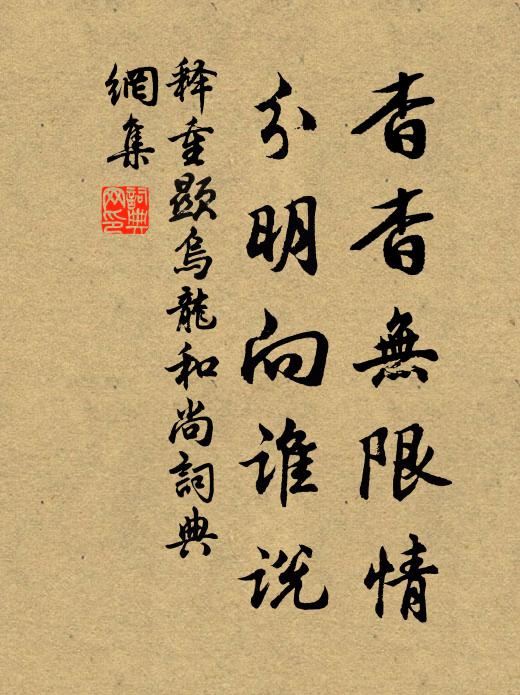 杳杳無限情
分明向谁说
释重顯烏龍和尚詞典
網集
詞典网印